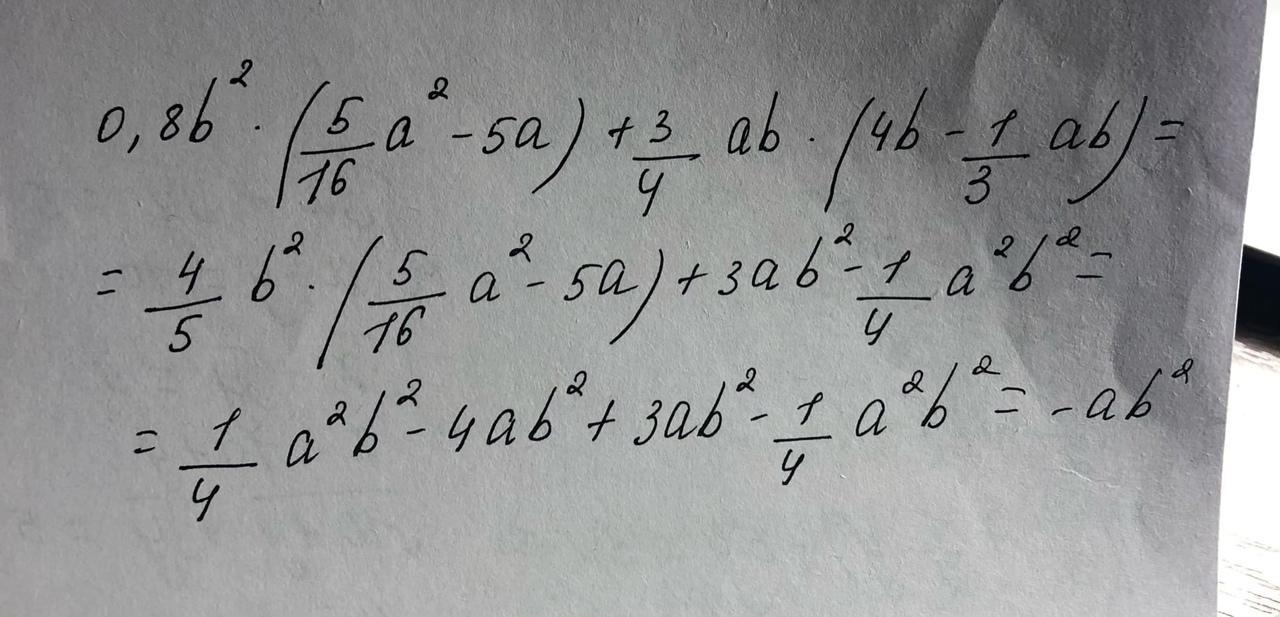 0,8b² · (5/16 a² - 5a) + 3/4 ab · (4b - 1/3 ab) =
= 4/5 b² · (5/16 a² - 5a) + 3ab² - 1/4 a²b² =
= 1/4 a²b² - 4ab² + 3ab² - 1/4 a²b² = -ab²